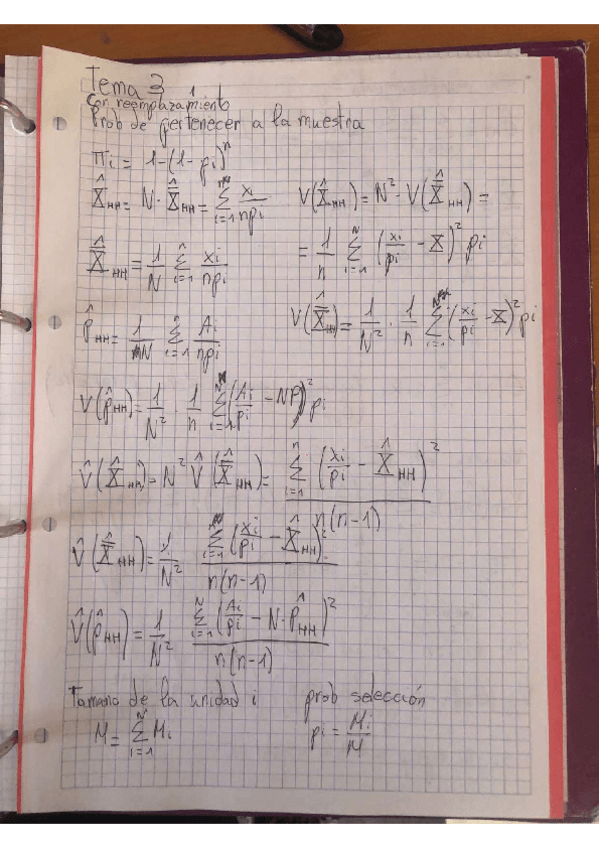 Tema 3 1
Con reemplazamiento
Prob de pertenecer a la muestra
πi = 1-(1-pi)^n
X̂HH = N · X̄̂HH = Σ_{i=1}^{n} xi/npi V(X̂HH) = N² · V(X̄̂HH) =
X̄̂HH = 1/N Σ_{i=1}^{n} xi/npi = 1/n Σ_{i=1}^{N} (xi/pi - X)² pi
p̂HH = 1/N Σ_{i=1}^{n} Ai/npi V(X̄̂HH) = 1/N² · 1/n Σ_{i=1}^{N} (xi/pi - X)² pi
V(p̂HH) = 1/N² · 1/n Σ_{i=1}^{N} (Ai/pi - NP)² pi
V̂(X̂HH) = N² V̂(X̄̂HH) = Σ_{i=1}^{n} (xi/pi - X̂HH)² / n(n-1)
V̂(X̄̂HH) = 1/N² Σ_{i=1} (xi/pi - X̂HH)² / n(n-1)
V̂(p̂HH) = 1/N² Σ_{i=1}^{N} (Ai/pi - N·P̂HH)² / n(n-1)
Tamano de la unidad i prob selección
M = Σ_{i=1}^{N} Mi pi = Mi/M